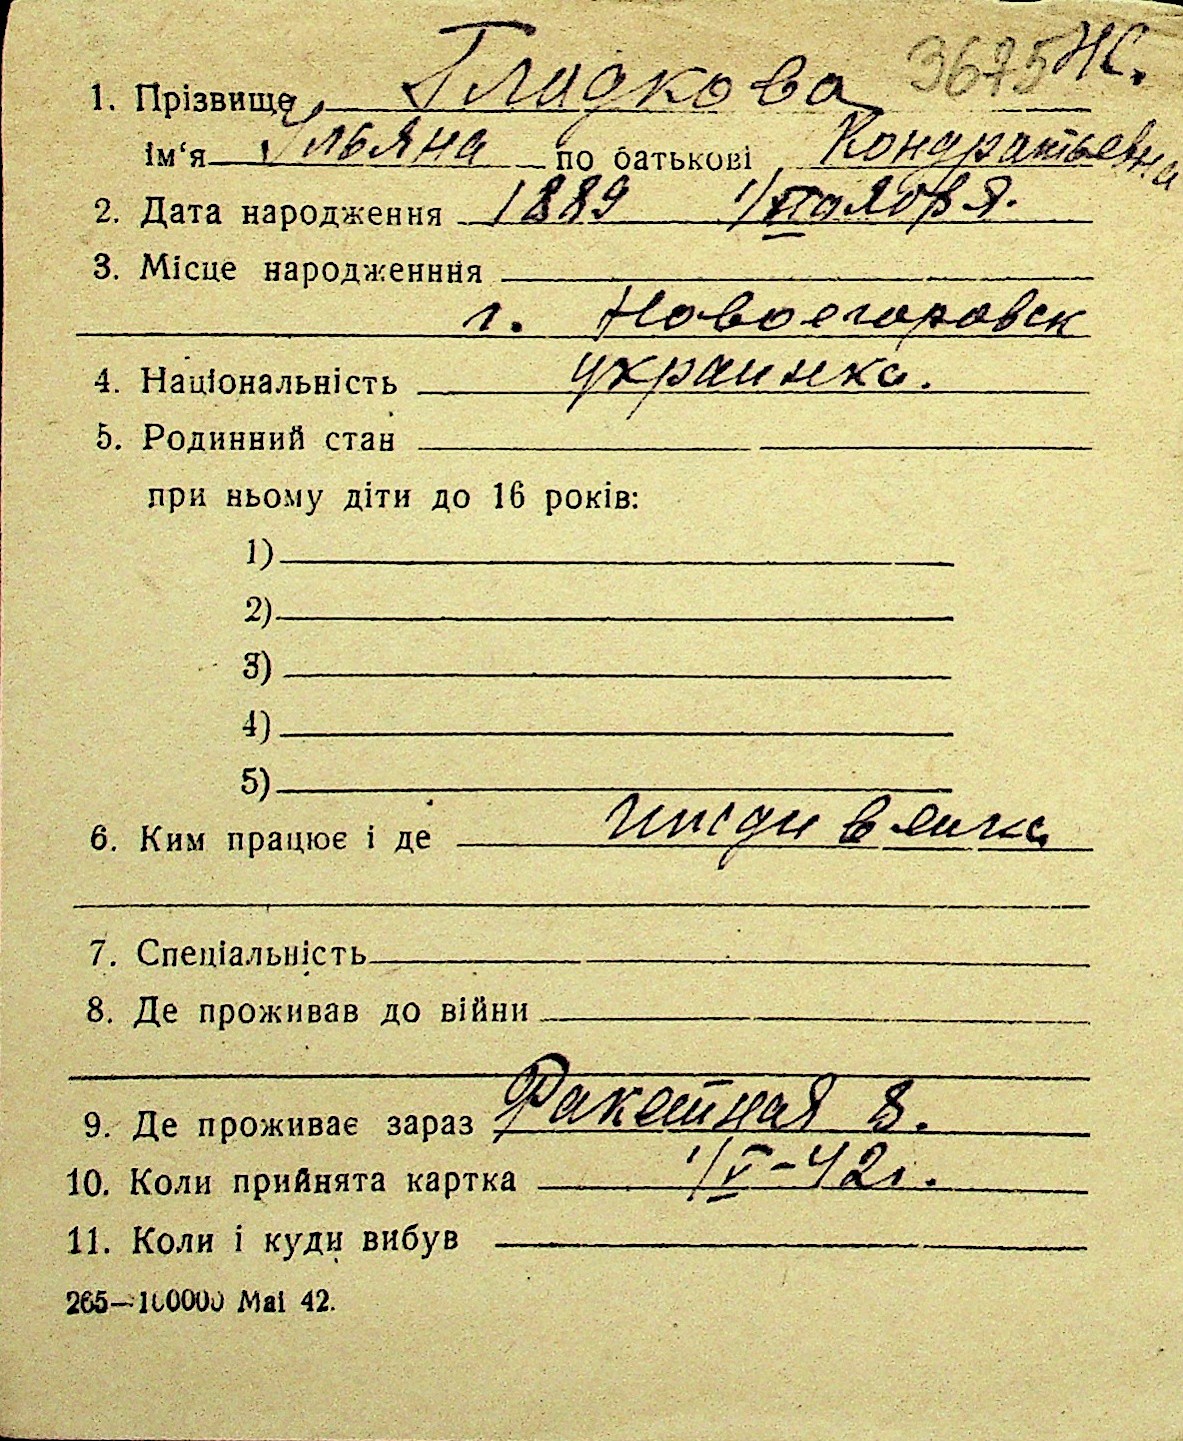 3675 НС.
1. Прізвище Гладкова
Ім‘я Ульяна по батькові Кондратьевна
2. Дата народження 1889 1/XI ноября.
3. Місце народженння
г. Новоегоровск
4. Національність украинка.
5. Родинний стан
при ньому діти до 16 років:
1)
2)
3)
4)
5)
6. Ким працює і де
7. Спеціальність
8. Де проживав до війни
9. Де проживає зараз Ракетная 8.
10. Коли прийнята картка 1/V-42г.
11. Коли і куди вибув
265—100000 Маі 42.